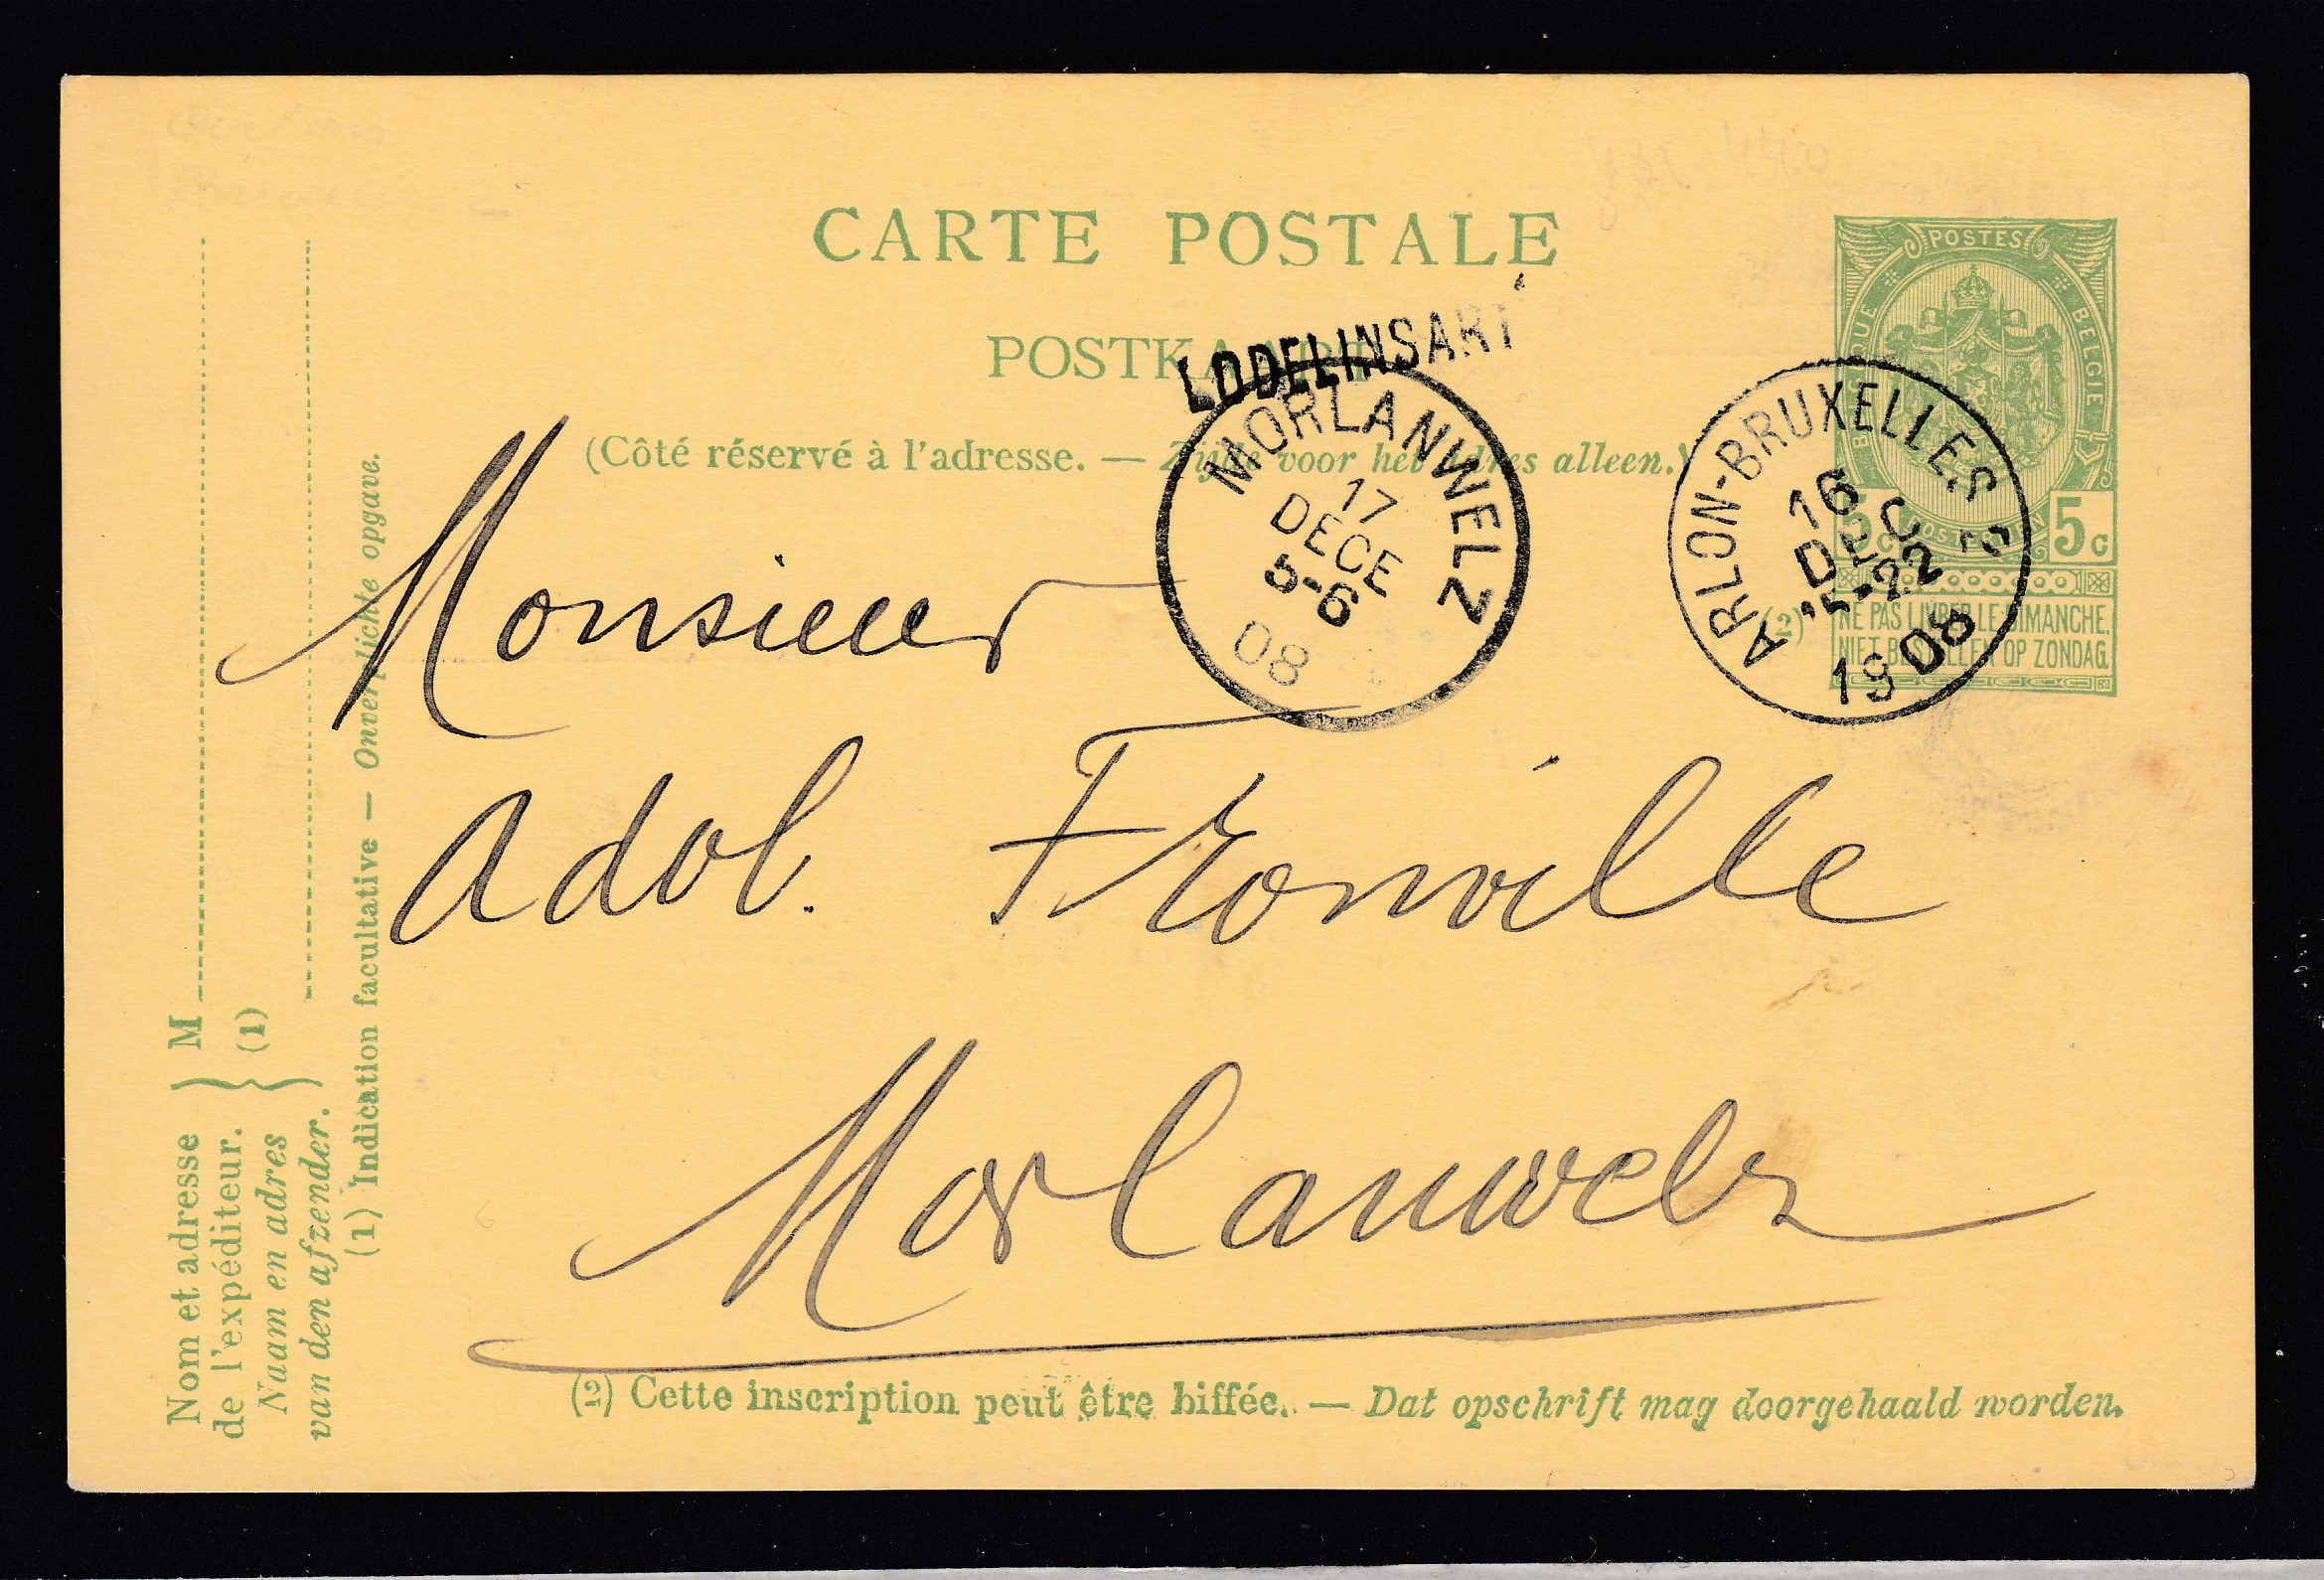 CARTE POSTALE
POSTKAART
(Côté réservé à l'adresse. — Zijde voor het adres alleen.)
POSTES
BELGIQUE BELGIE
POSTERIJEN
5c 5c
(2) NE PAS LIVRER LE DIMANCHE.
NIET BESTELLEN OP ZONDAG.
LODELINSART
MORLANWELZ
17
DECE
5-6
08
ARLON-BRUXELLES 2
16
DEC
5-22
1908
Monsieur
Adol. Fronville
Morlanwelz
(2) Cette inscription peut être biffée. — Dat opschrift mag doorgehaald worden.
Nom et adresse
de l'expéditeur.
Naam en adres
van den afzender.
M
(1)
(1) Indication facultative — Onverplichte opgave.